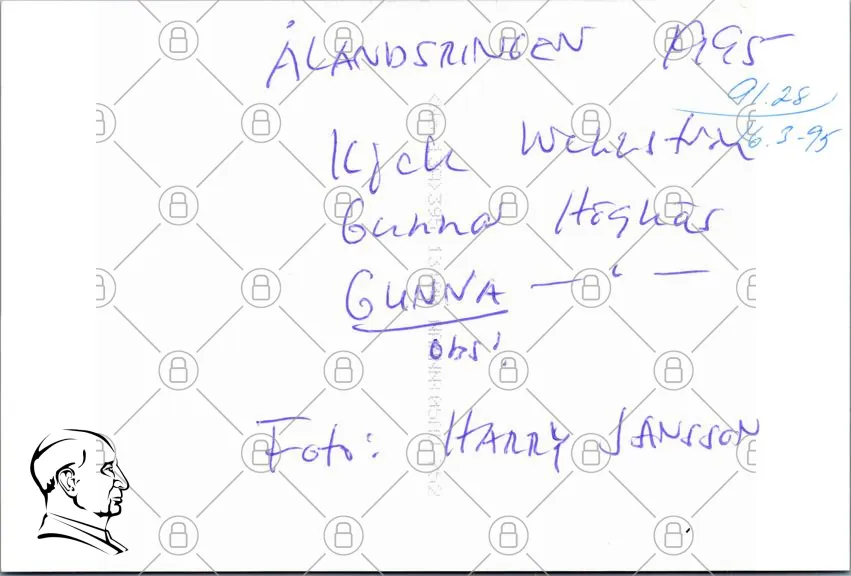 ÅLANDSRINGEN 1995
91.28
6.3-95
Kjell Wellström
Gunna Höghäs
GUNNA — " —
obs!
Foto: HARRY JANSSON